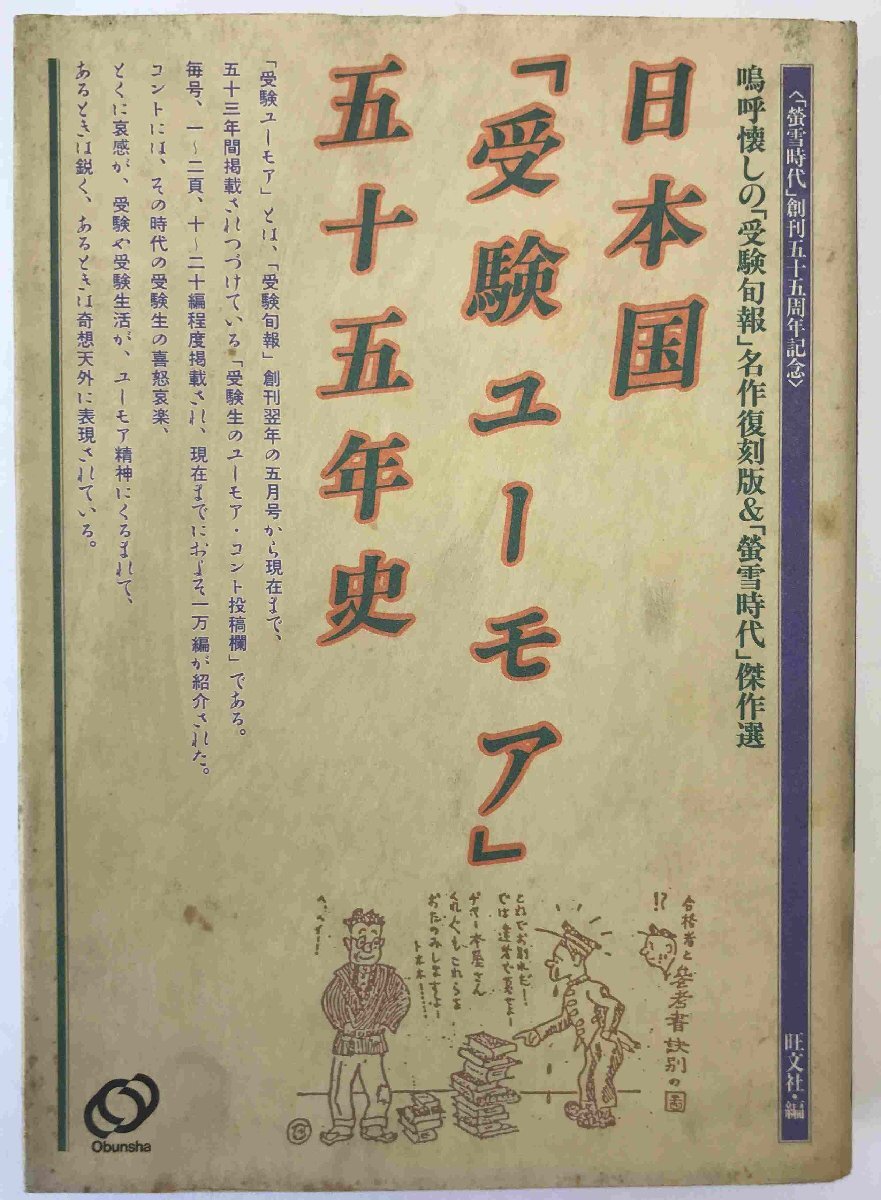 〈「螢雪時代」創刊五十五周年記念〉
旺文社・編
嗚呼懐しの「受験旬報」名作復刻版&「螢雪時代」傑作選
日本国
「受験ユーモア」
五十五年史
「受験ユーモア」とは、「受験旬報」創刊翌年の五月号から現在まで、
五十三年間掲載されつづけている「受験生のユーモア・コント投稿欄」である。
毎号、一〜二頁、十〜二十編程度掲載され、現在までにおよそ一万編が紹介された。
コントには、その時代の受験生の喜怒哀楽、
とくに哀感が、受験や受験生活が、ユーモア精神にくるまれて、
あるときは鋭く、あるときは奇想天外に表現されている。
合格者と参考書訣別の図
!?
これでお別れだ!
では達者で居さよー
本屋さん
くれぐもこれらを
おたのみしますよー
トホホ……
へ、へー!
Obunsha